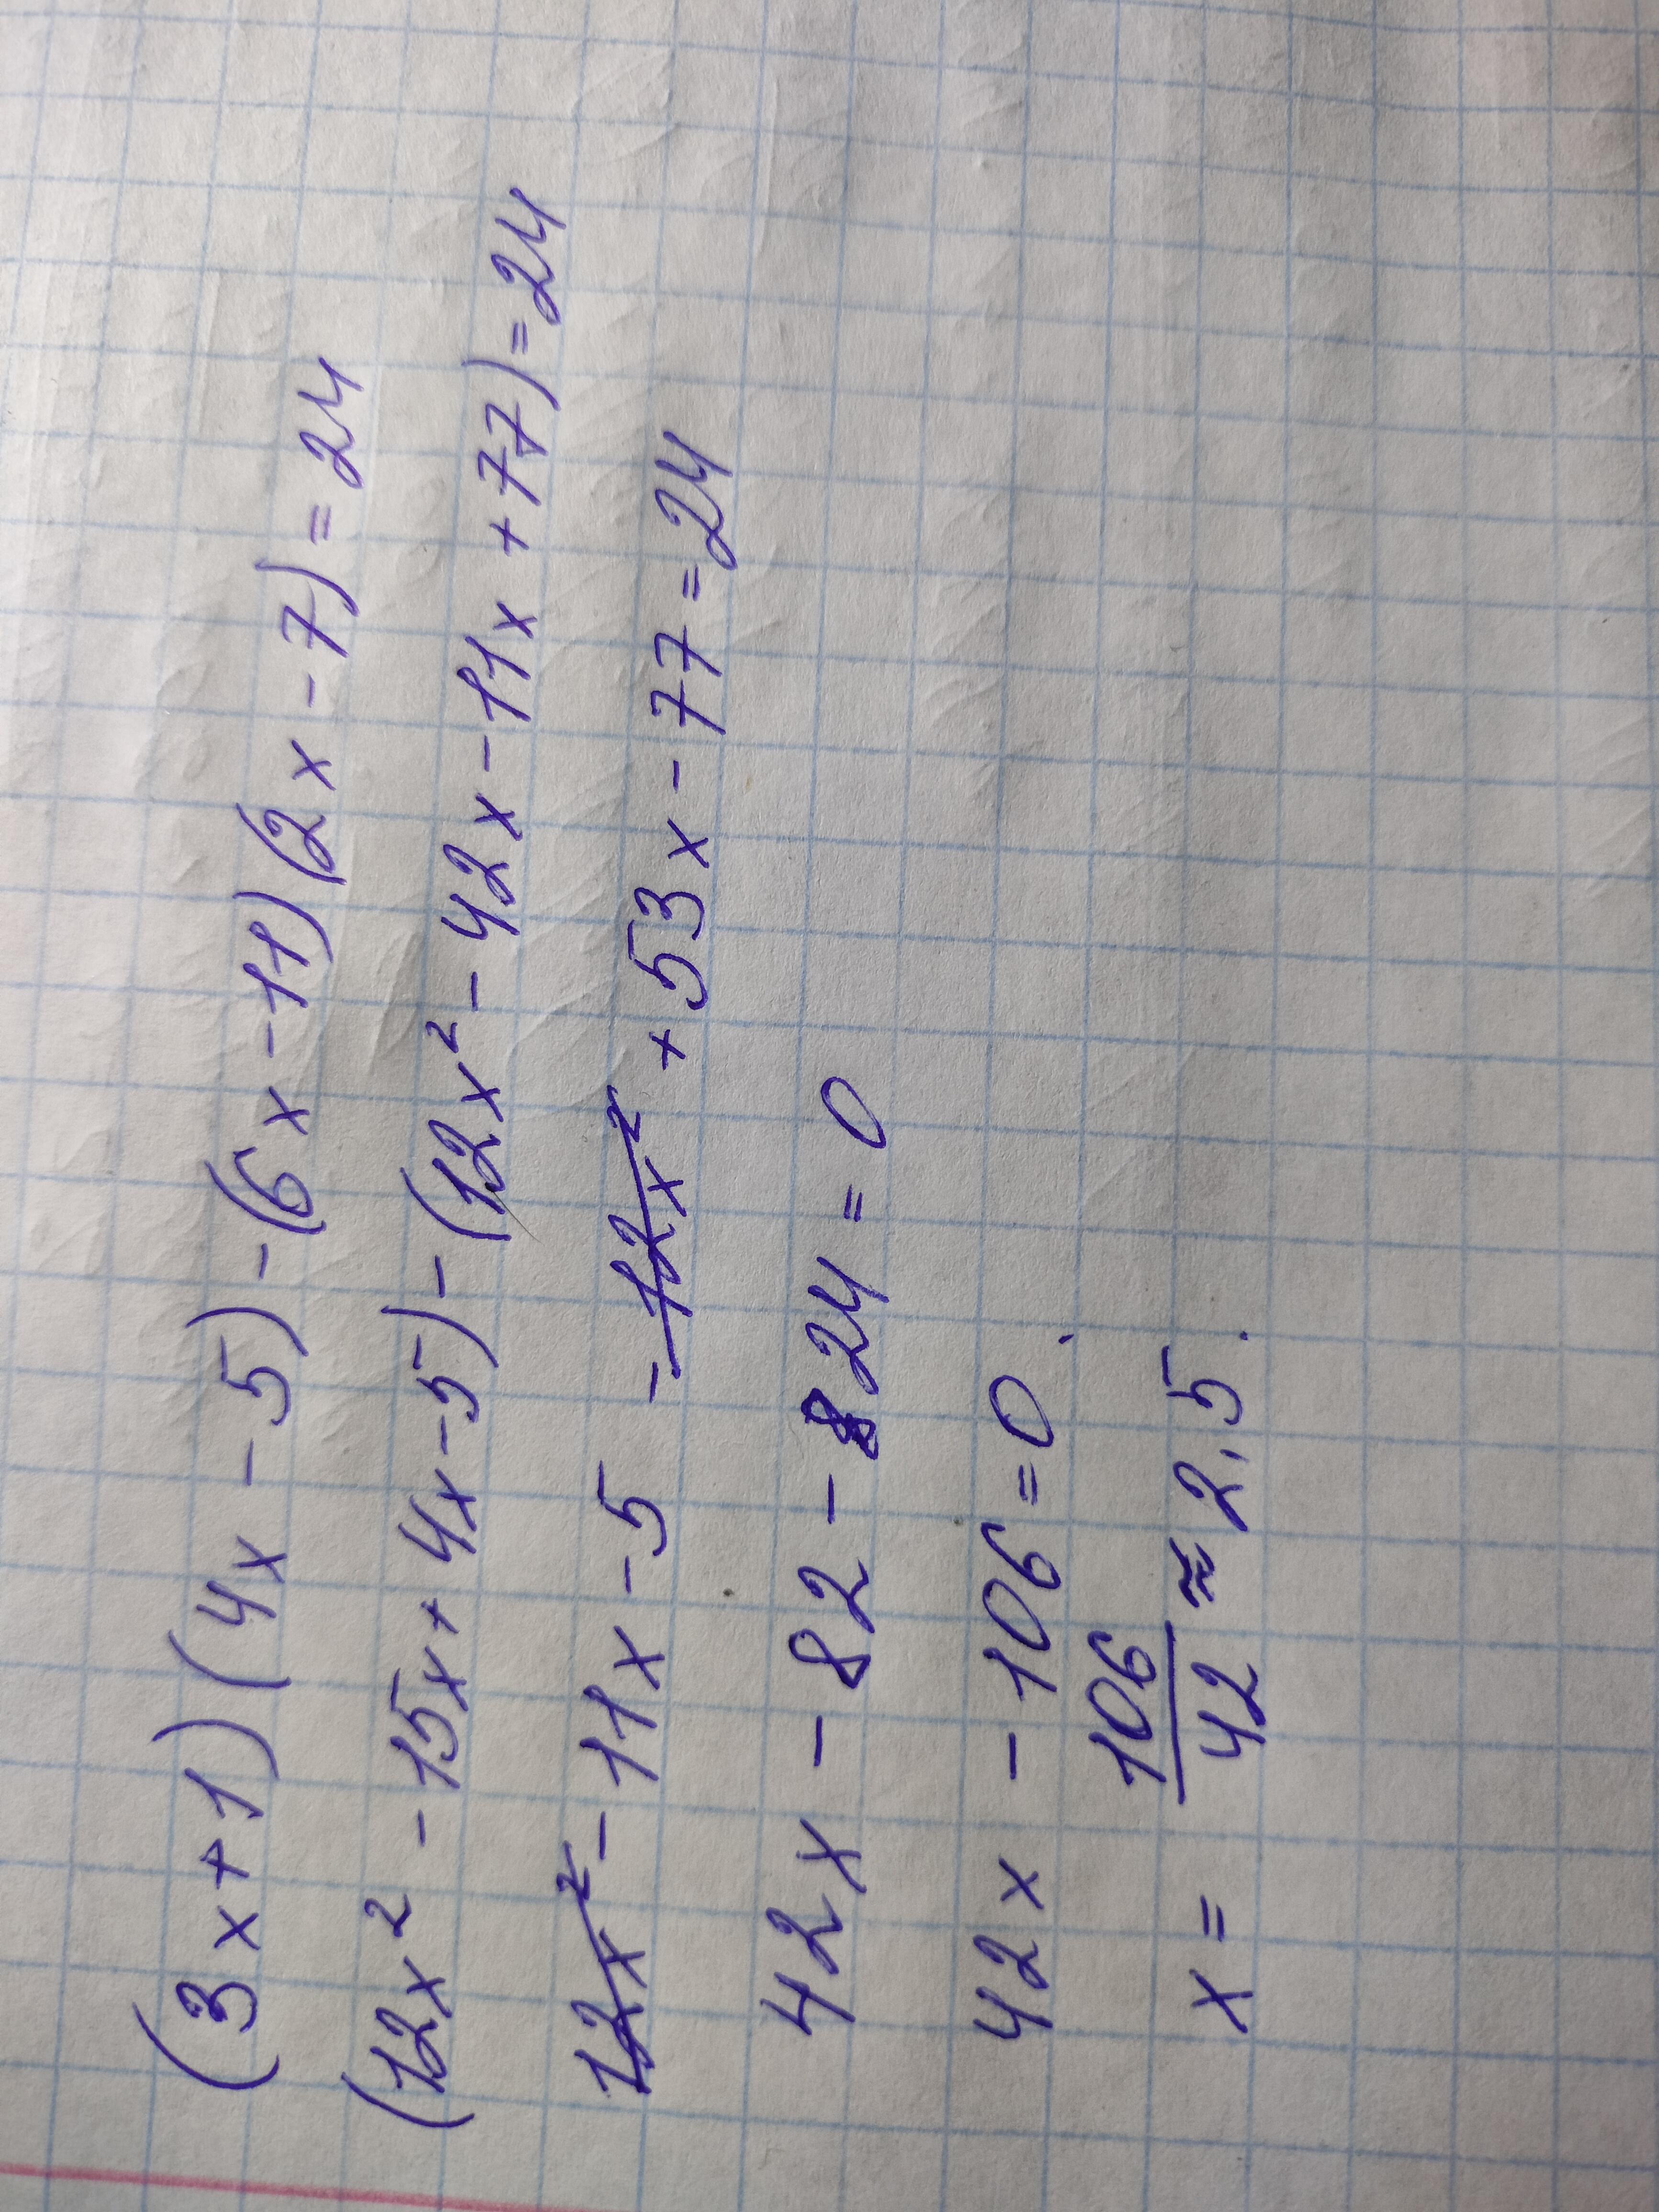 (3x+1)(4x-5)-(6x-11)(2x-7)=24
(12x²-15x+4x-5)-(12x²-42x-11x+77)=24
12x²-11x-5 -12x²+53x-77=24
42x-82-24=0
42x-106=0.
x=106/42≈2,5.